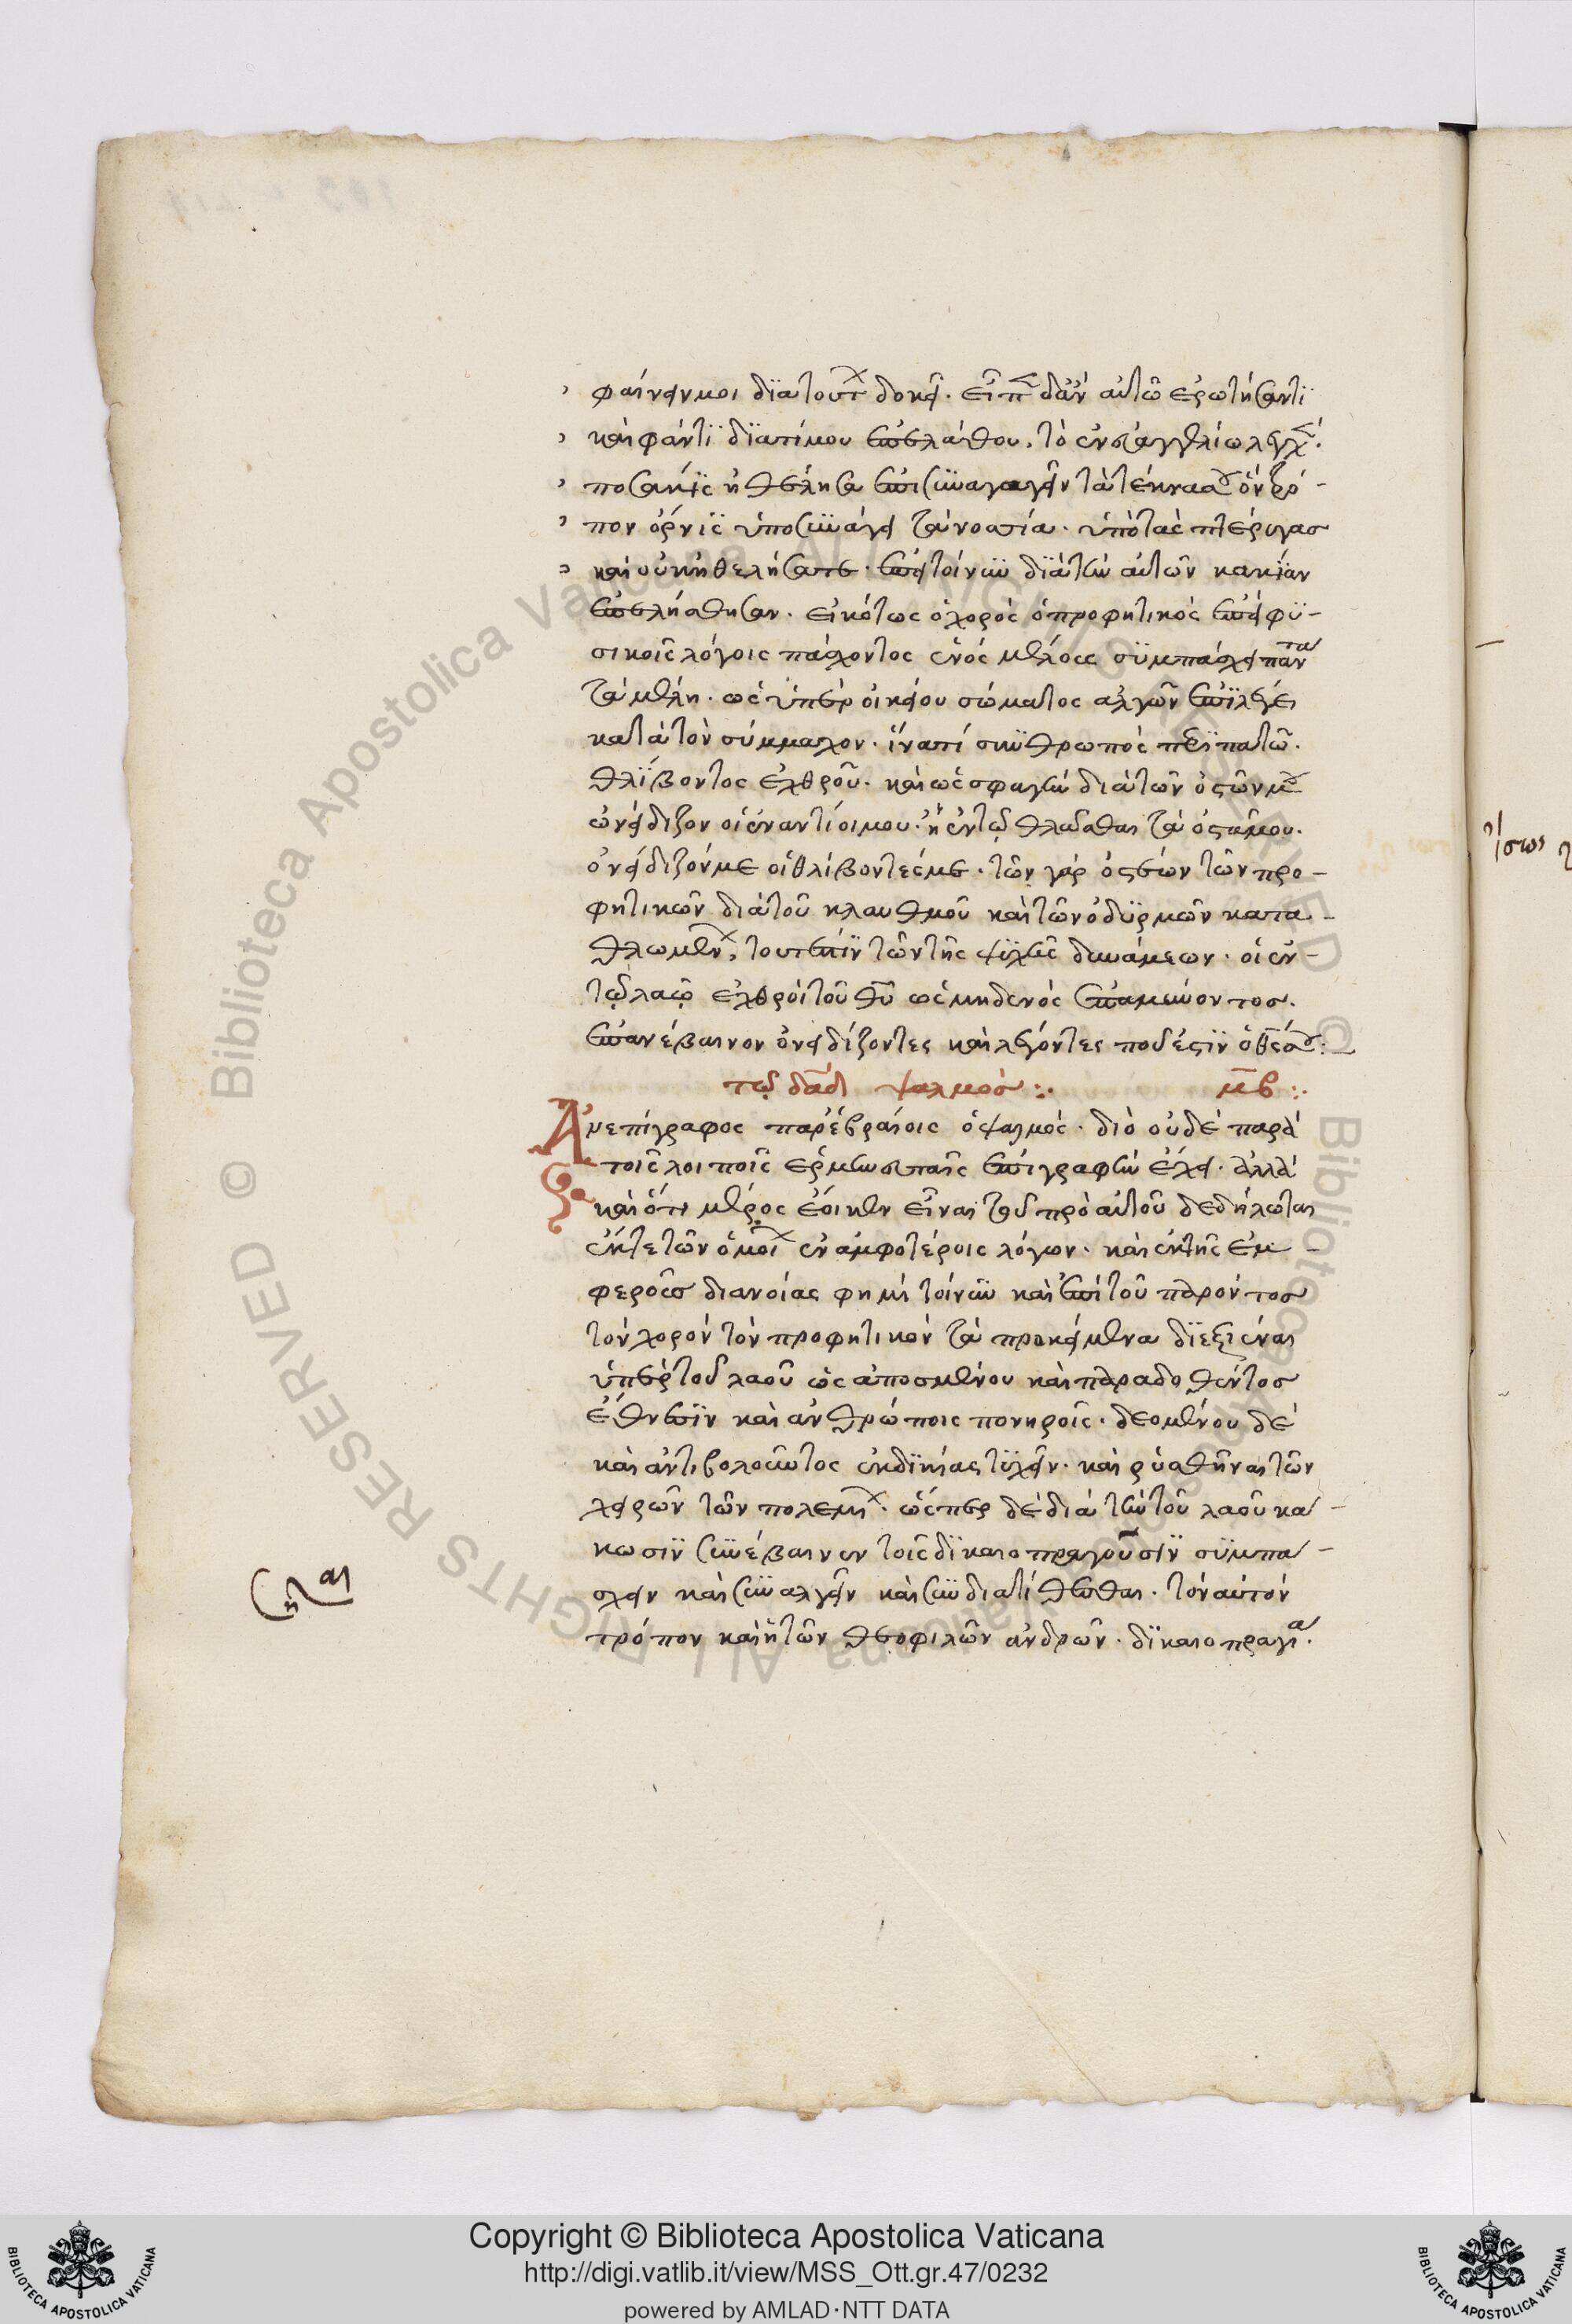 φαίνειν μοι διατοῦτο δοκεῖ. εἶπεν δ' ἂν αὐτῶ ἐρωτήσαντι
καὶ φάντι διατί μου ἐπελάθου, τὸ ἐν εὐαγγελίω λεχθέν.
ποσακις ἠθέλησα ἐπισυναγαγεῖν τὰ τέκνα σου ὃν τρό-
πον ὄρνις ὑποσυνάγει τὰ νοσσία. ὑπὸ τὰς πτέρυγασ
καὶ οὐκ ἠθελήσατε. ἐπεὶ τοίνυν διὰ τὴν αὐτῶν κακίαν
ἐπελήσθησαν. εἰκότως ὁ χορὸς ὁ προφητικὸς ἐπεὶ φυ-
σικοῖς λόγοις πάσχοντος ἑνὸς μέλους συμπάσχει πάντα
τὰ μέλη. ὡς ὑπὲρ οἰκείου σώματος ἀλγῶν ἐπιλέγει
κατὰ τὸν σύμμαχον. ἵνα τί σκυθρωπὸς περιπατῶ.
θλίβοντος ἐχθροῦ. καὶ ὡς σφαγὴν διὰ τῶν ὀστῶν μου
ὠνείδιζον οἱ ἐναντίοι μου. ἢ ἐν τῶ θλᾶσθαι τὰ ὀστᾶ μου.
ὀνείδιζόν με οἱ θλίβοντές με. τῶν γὰρ ὀστέων τῶν προ-
φητικῶν διὰ τοῦ κλαυθμοῦ καὶ τῶν ὀδυρμῶν κατα-
θλωμένων, τουτέστιν τῶν τῆς ψυχῆς δυνάμεων. οἱ ἐν
τῶ λαῶ ἐχθροὶ τοῦ θῦ ὡς μηδενὸς ἐπαμύνοντοσ.
ἐπανέβαινον ὀνειδίζοντες καὶ λέγοντες ποῦ ἐστιν ὁ θεός σου:
τῷ δᾶδ ψαλμόσ:. μβ:.
Ἀνεπίγραφος παρ' ἑβραίοις ὁ ψαλμὸς. διὸ οὐδὲ παρὰ
τοῖς λοιποῖς ἑρμηνευταῖς ἐπιγραφὴν ἔχει. ἀλλὰ
καὶ ὅτι μέρος ἔοικεν εἶναι τοῦ πρὸ αὐτοῦ δεδήλωται
ἔκ τε τῶν ὁμοίων ἐν ἀμφοτέροις λόγων. καὶ ἐκ τῆς ἐμ-
φεροῦς διανοίας φημὶ τοίνυν καὶ ἐπὶ τοῦ παρόντοσ
τὸν χορὸν τὸν προφητικὸν τὰ προκείμενα διεξιέναι
ὑπὲρ τοῦ λαοῦ ὡς ἀπωσμένου καὶ παραδοθέντοσ
ἔθνεσιν καὶ ἀνθρώποις πονηροῖς. δεομένου δὲ
καὶ ἀντιβολοῦντος ἐκδικίας τυχεῖν. καὶ ῥυσθῆναι τῶν
χειρῶν τῶν πολεμίων. ὥσπερ δὲ διὰ τὴν τοῦ λαοῦ κά-
κωσιν συνέβαινεν τοῖς δικαιοπραγοῦσιν συμπά-
σχειν καὶ συναλγεῖν καὶ συνδιατίθεσθαι. τὸν αὐτὸν
τρόπον καὶ ἡ τῶν θεοφιλῶν ἀνδρῶν. δικαιοπραγία.
Copyright © Biblioteca Apostolica Vaticana
http://digi.vatlib.it/view/MSS_Ott.gr.47/0232
powered by AMLAD·NTT DATA